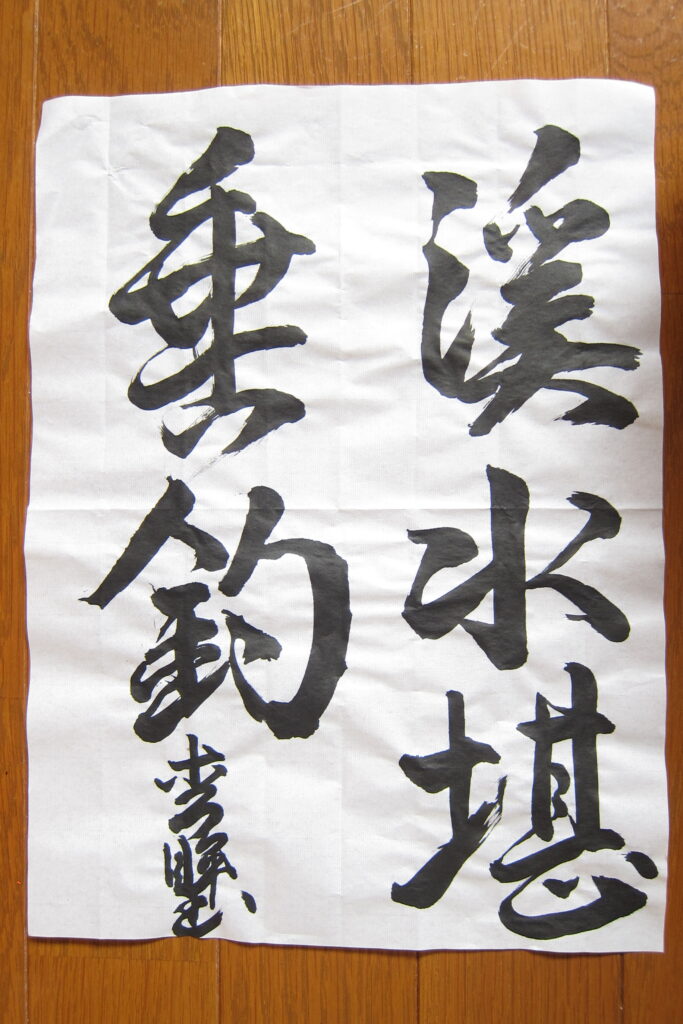 溪水堪
垂釣